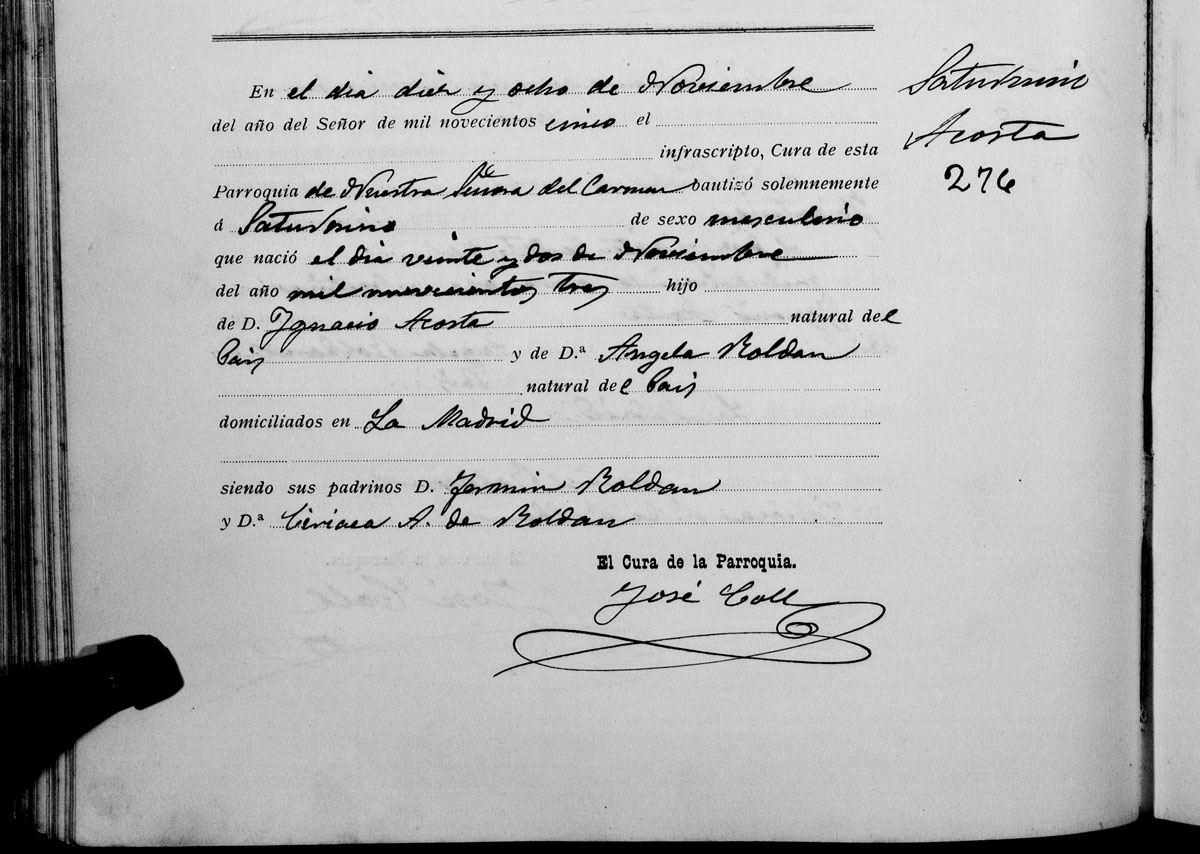 En el dia diez y ocho de Noviembre
del año del Señor de mil novecientos cinco el
infrascripto, Cura de esta
Parroquia de Nuestra Señora del Carmen bautizó solemnemente
á Saturnino de sexo masculino
que nació el dia veinte y dos de Noviembre
del año mil nuevecientos tres hijo
de D. Ygnacio Acosta natural del
Pais y de D.ª Angela Roldan
natural del Pais
domiciliados en La Madrid
siendo sus padrinos D. Fermin Roldan
y D.ª Ciriaca A. de Roldan
El Cura de la Parroquia.
José Coll
Saturnin
Acosta
276